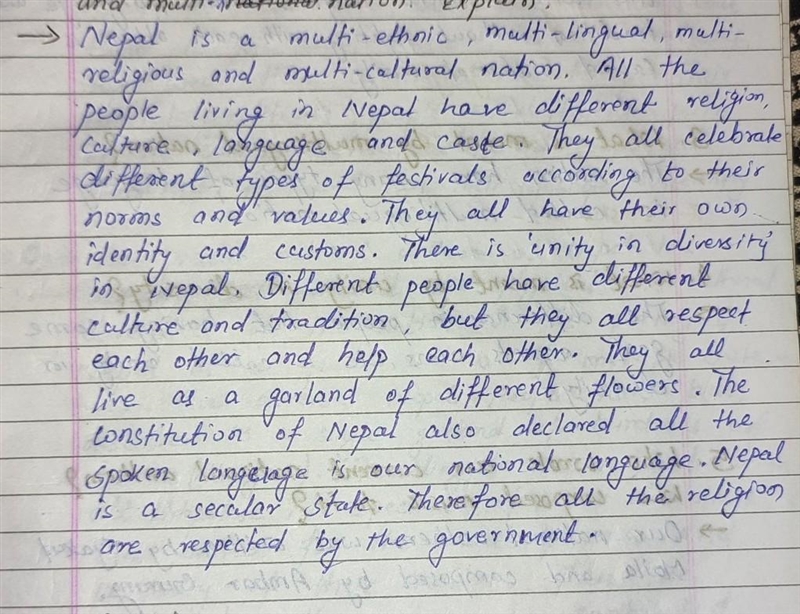 and multi- nation. Explain.
→ Nepal is a multi-ethnic, multi-lingual, multi-
religious and multi-cultural nation. All the
people living in Nepal have different religion,
culture, language and caste. They all celebrate
different types of festivals according to their
norms and values. They all have their own
identity and customs. There is 'unity in diversity'
in Nepal. Different people have different
culture and tradition, but they all respect
each other and help each other. They all
live as a garland of different flowers. The
constitution of Nepal also declared all the
spoken language is our national language. Nepal
is a secular state. Therefore all the religion
are respected by the government.